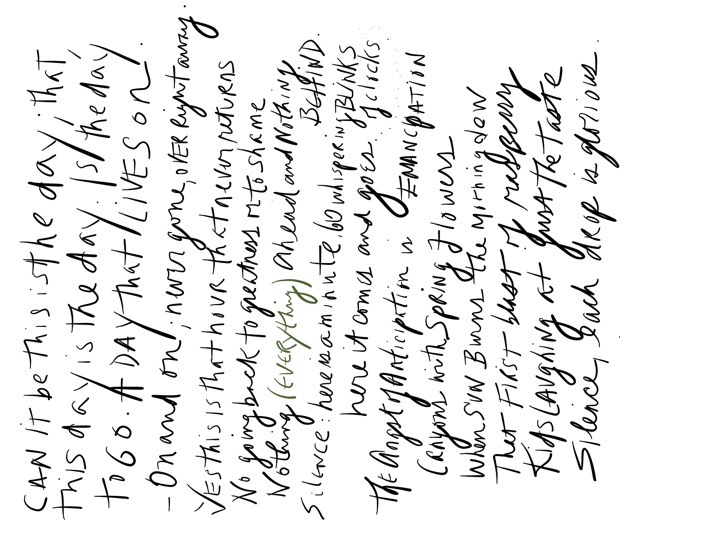 CAN it be this is the day, that
this day is the day. Is the day
to Go. A DAY that LIVES on.
- On and on, never gone, oVER Right away.
Yes this is that hour that never returns
No going back to greatness or to shame
Nothing (EVERYthing) ahead and Nothing
BEHIND.
Silence: here is a minute. 60 whispering BLINKS
here it comes and goes. of clocks.
The Angst of Anticipation is EMANCIPATION
Canyons with Spring Flowers
when SUN Burns the morning dew
That First blast of raspberry
Kids LAughing at just the taste
Silence, Each dRop is glorious.